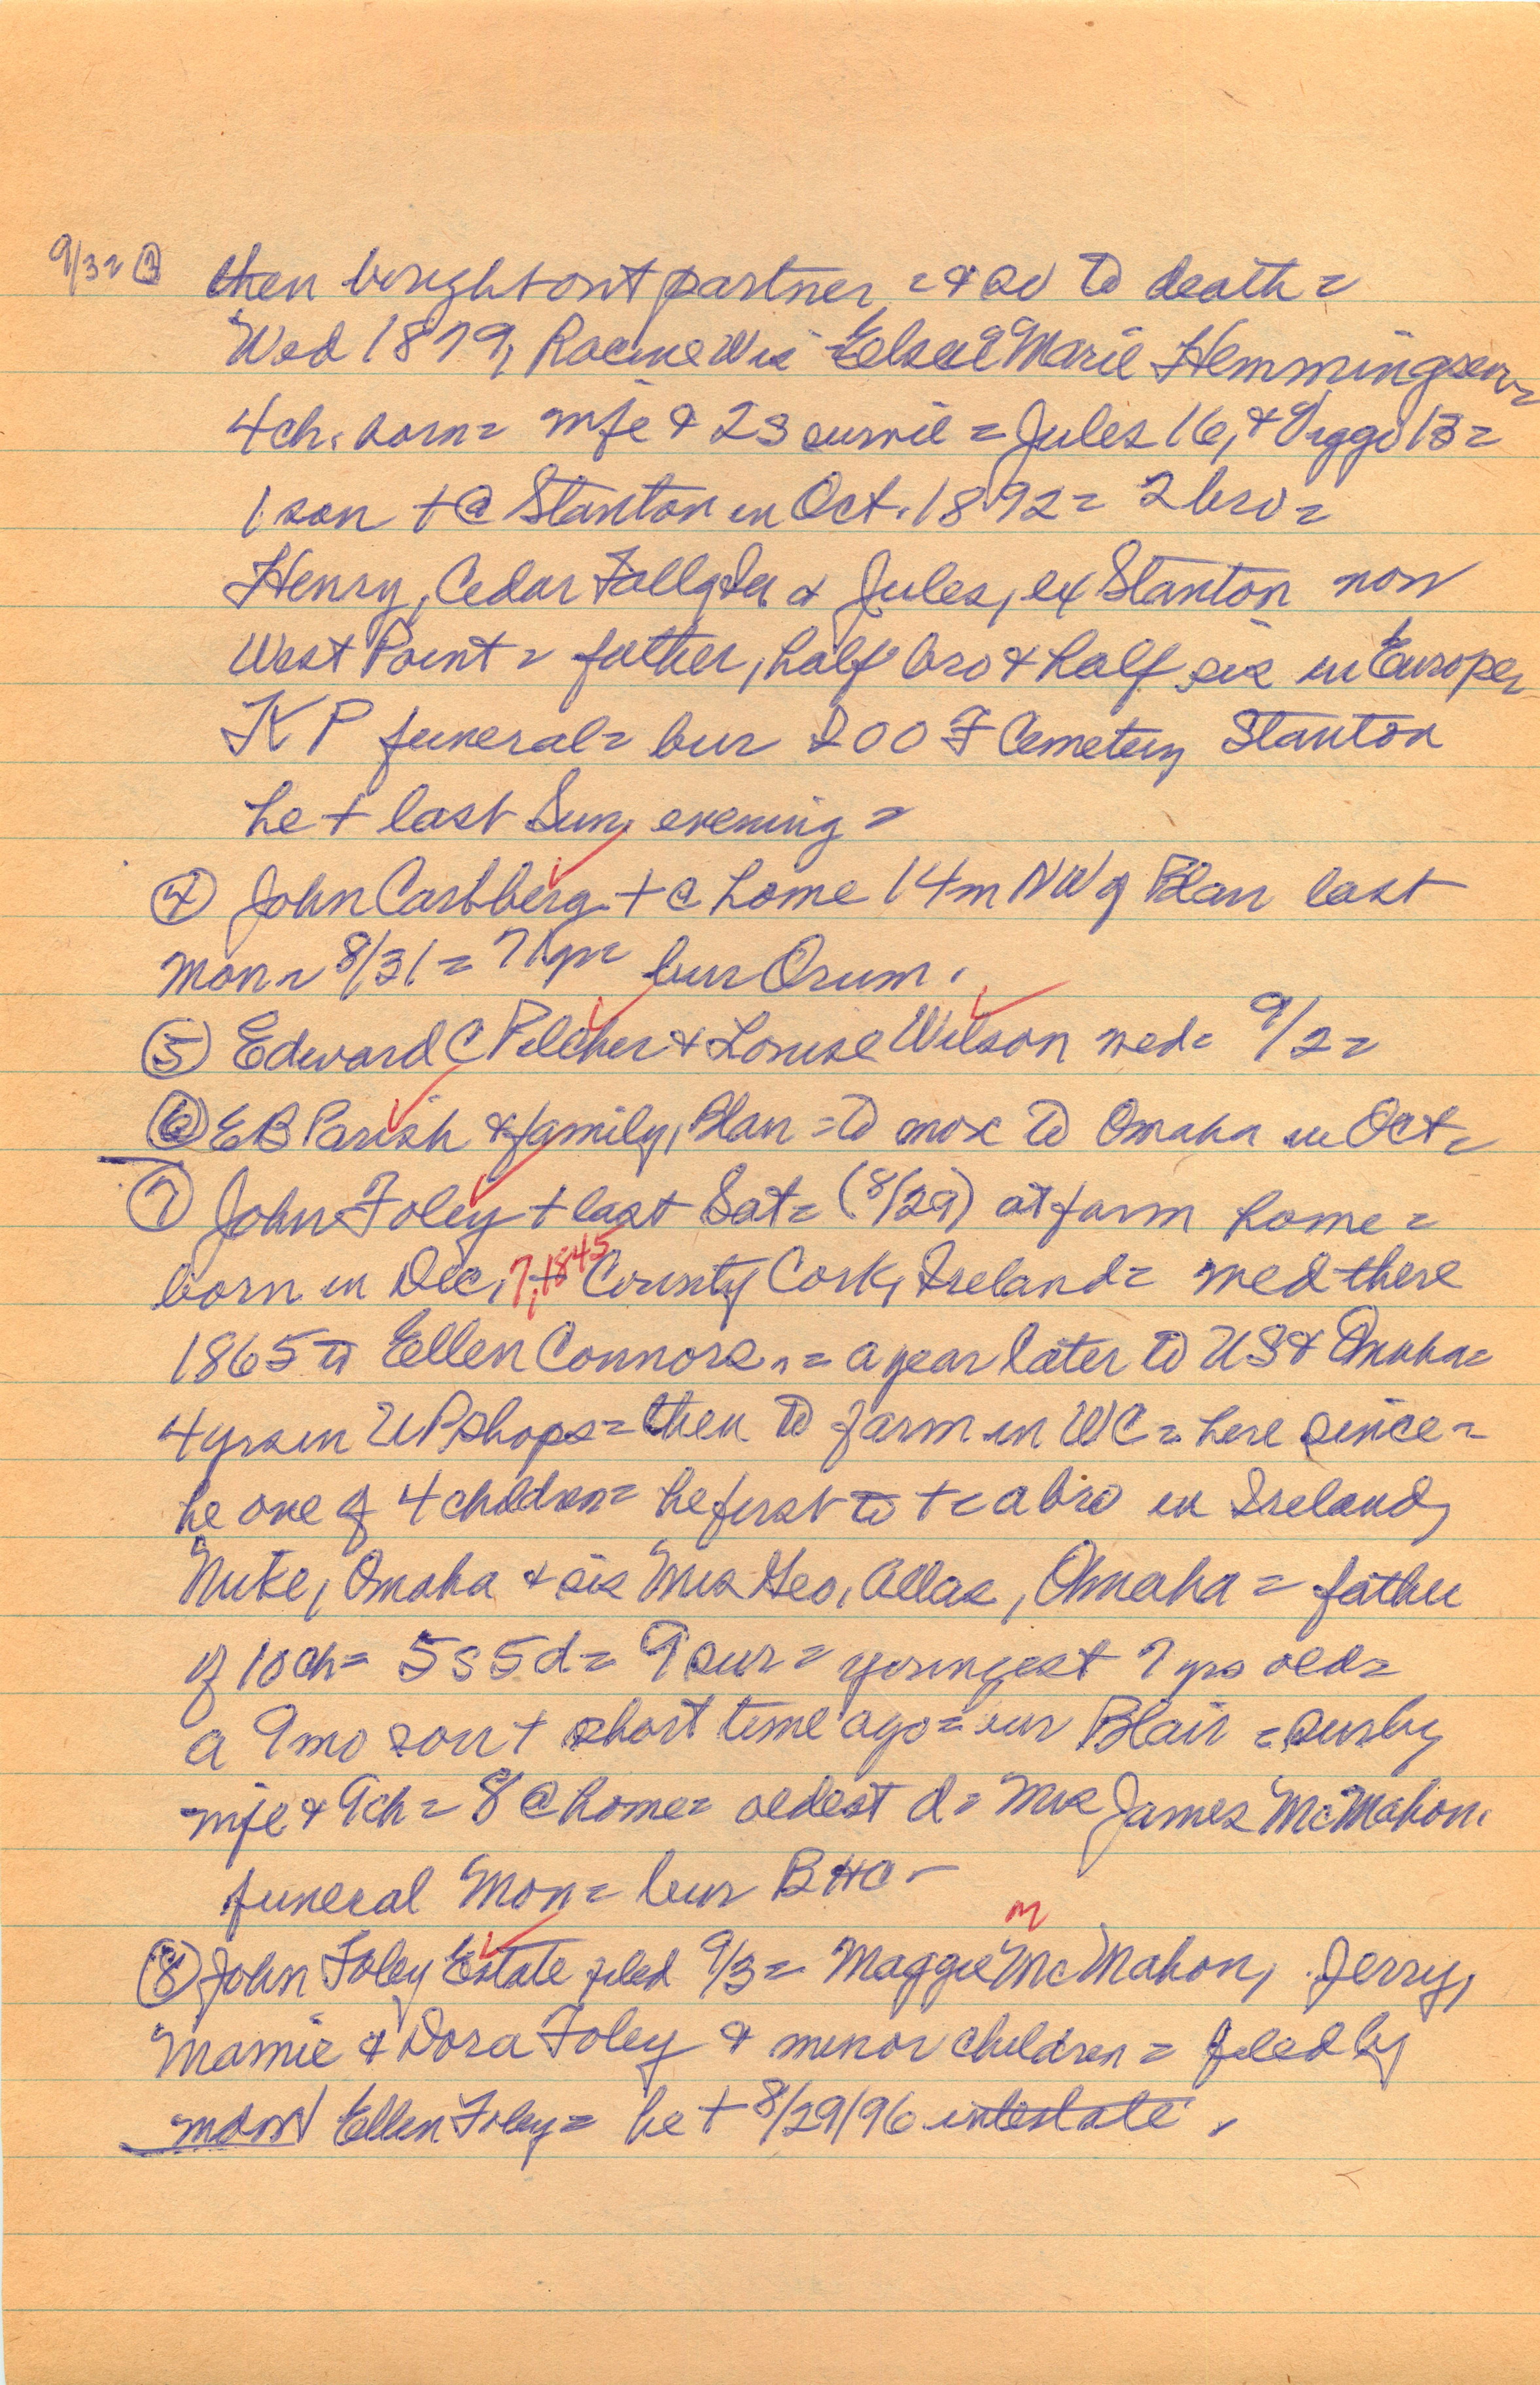 9/3= ③ then bought out partner = & so to death =
Wed 1879, Racine Wis Marie Hemmingsen =
4ch. born = wife & 2s survive = Jules 16, & Viggo 13 =
1 son + @ Stanton in Oct. 1892 = 2 bro =
Henry, Cedar Falls, Ia & Jules, ex Stanton now
West Point = father, half bro & half sis in Europe =
K P funeral = bur IOOF Cemetery Stanton
he + last Sun. evening =
④ John Carlberg + @ home 14m NW of Blair last
Mon = 8/31 = 71yr = bur Orum.
⑤ Edward C Pilcher & Louise Wilson wed = 9/2 =
⑥ EB Parish & family, Blair = to move to Omaha in Oct =
⑦ John Foley + last Sat = (8/29) at farm home =
born in Dec, 7, 1845 County Cork, Ireland = wed there
1865 to Ellen Connors = a year later to US & Omaha =
4 yrs in UP shops = then to farm in WC = here since =
he one of 4 children = he first to + = a bro in Ireland,
Mike, Omaha & sis Mrs Geo. , Omaha = father
of 10 ch = 5s 5d = 9 sur = youngest 7 yrs old =
a 9mo son + short time ago = in Blair = sur by
wife & 9ch = 8 @ home = oldest d = Mrs James McMahon.
funeral Mon = bur BHC -
m
⑧ John Foley Estate filed 9/3 = Maggie McMahon, Jerry,
Mamie & Dora Foley & minor children = filed by
Ellen Foley = he + 8/29/96 intestate.